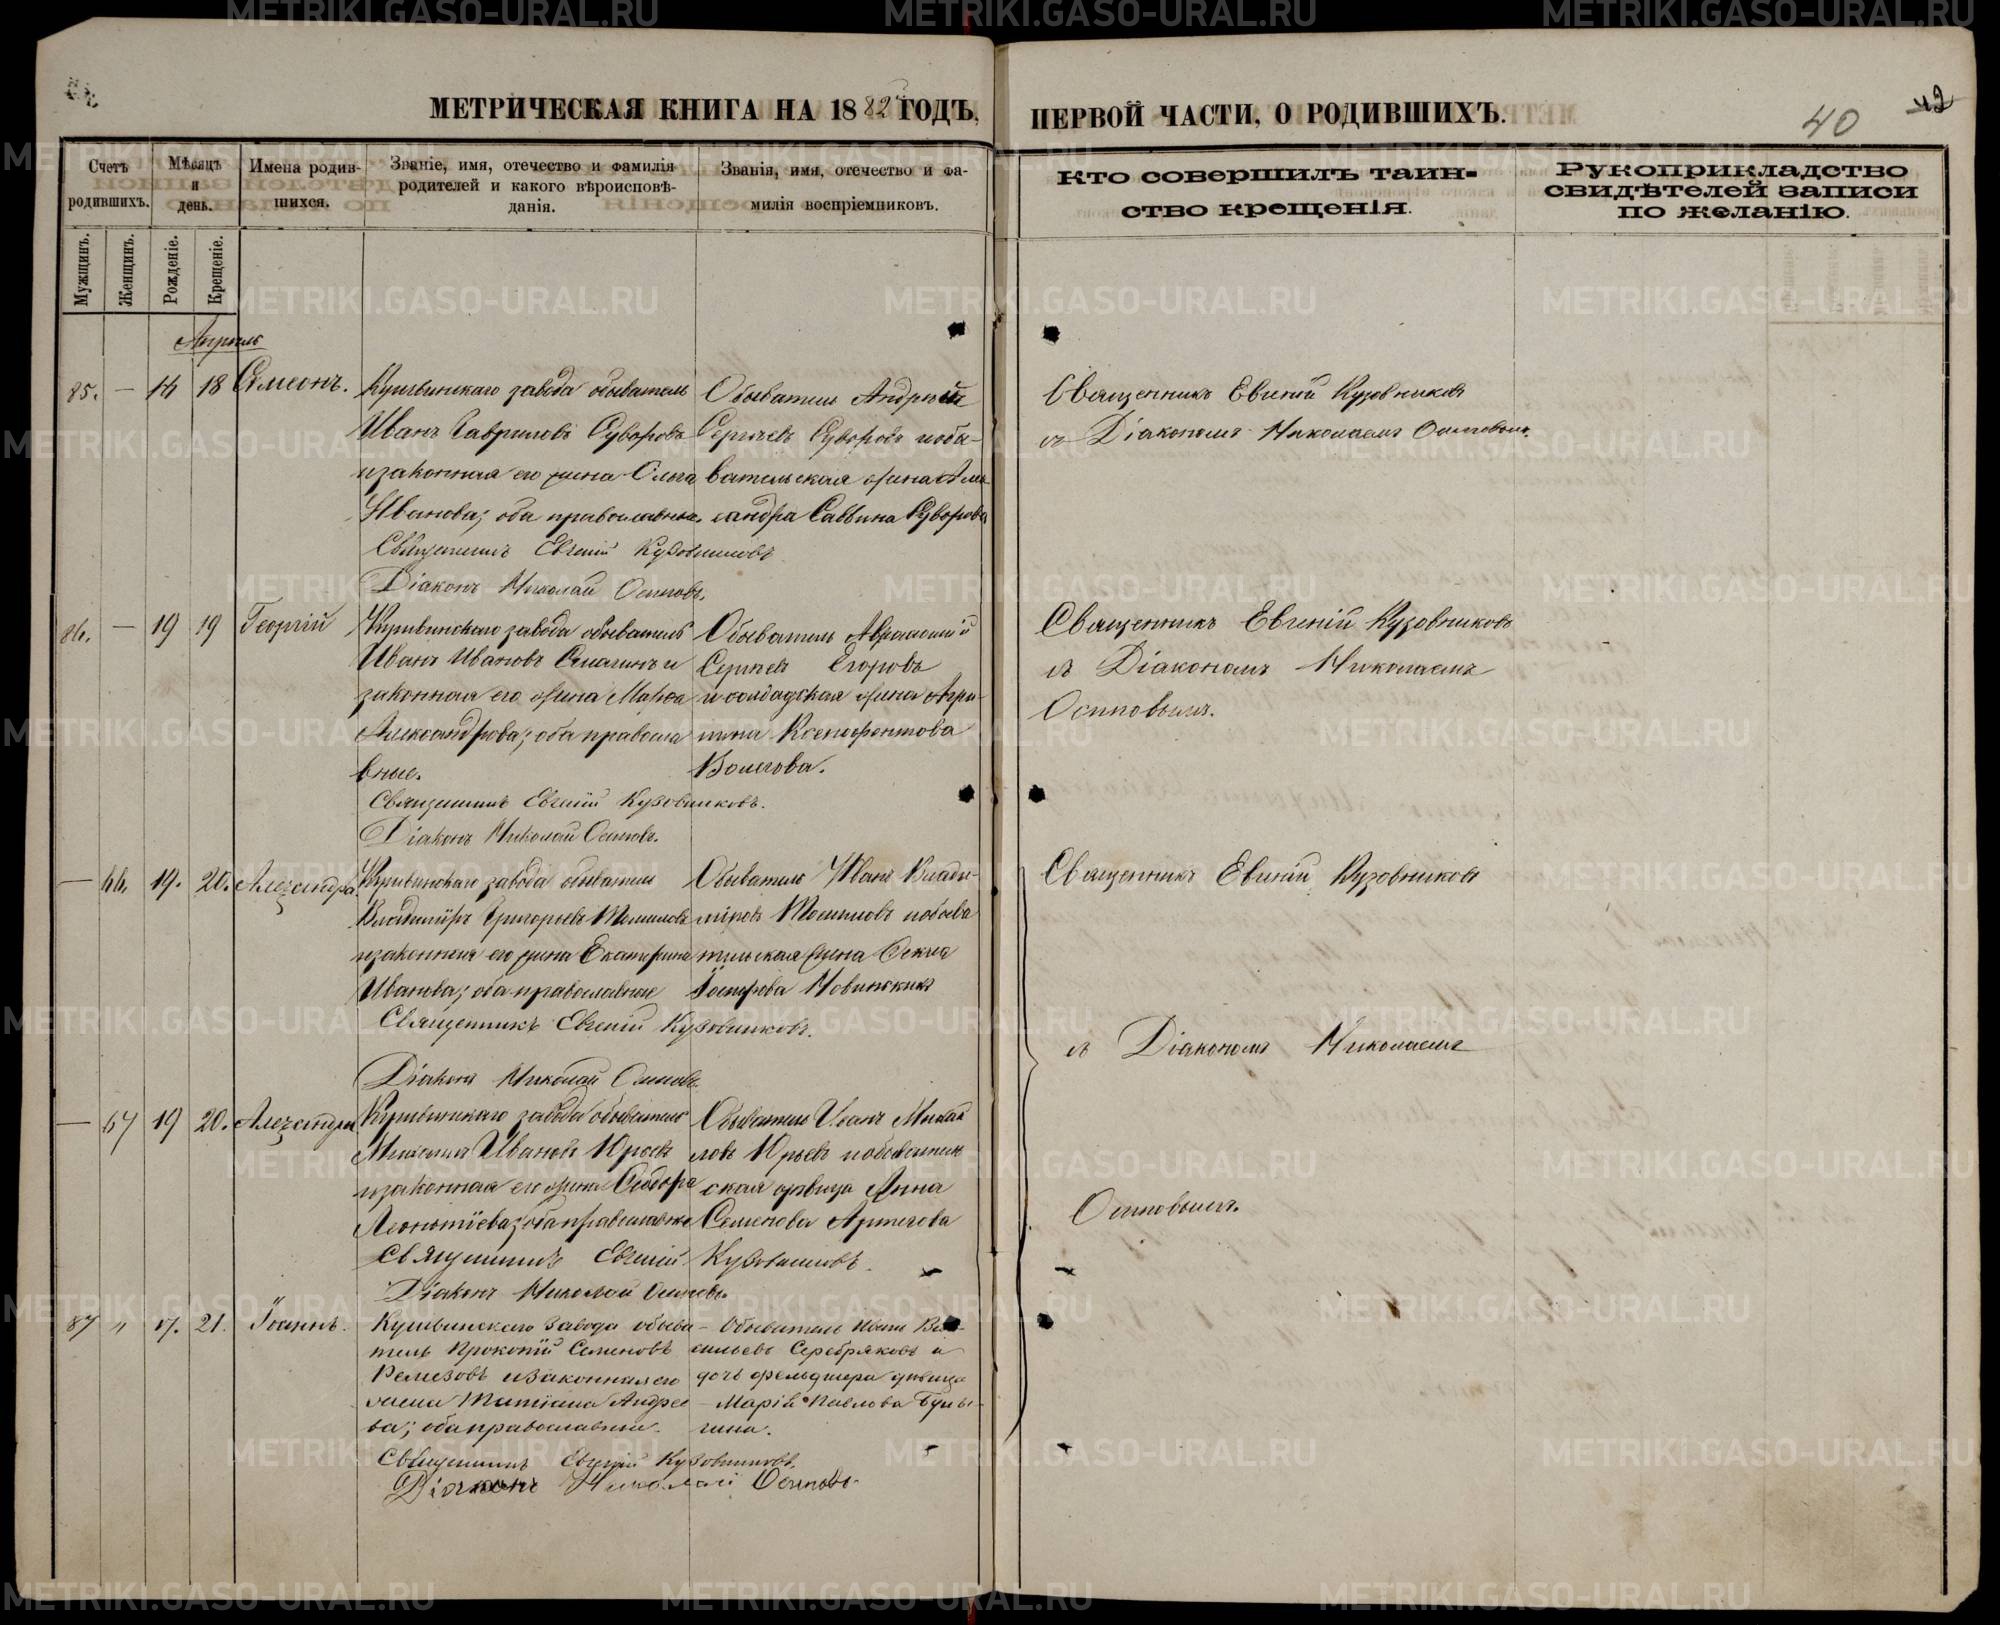 МЕТРИЧЕСКАЯ КНИГА НА 1882 ГОДЪ,
ПЕРВОЙ ЧАСТИ, О РОДИВШИХЪ.
40
42
Счетъ родившихъ.
Мѣсяцъ и день.
Имена родившихся.
Званіе, имя, отечество и фамилія родителей и какого вѣроисповѣданія.
Званія, имя, отечество и фамилія воспріемниковъ.
Кто совершилъ таинство крещенія.
Рукоприкладство свидѣтелей записи по желанію.
Мужщинъ.
Женщинъ.
Рожденіе.
Крещеніе.
Апрѣль
85. — 14 18 Симеонъ.
Кушвинскаго завода обыватель
Иванъ Гавриловъ Суворовъ
и законная его жена Ольга
Иванова; оба православные.
Обыватель Андрей
Сергѣевъ Суворовъ и обы-
вательская жена Алек-
сандра Саввина Суворова
Священникъ Евгеній Кузовниковъ
Діаконъ Николай Осиповъ.
Священникъ Евгеній Кузовниковъ
съ Діакономъ Николаемъ Осиповымъ.
86. — 19 19 Георгій
Кушвинскаго завода обыватель
Иванъ Ивановъ и
законная его жена Марѳа
Александрова; оба правосла
вные.
Обыватель
Сергѣевъ Егоровъ
и солдатская жена Агри-
пина Ксенофонтова
Священникъ Евгеній Кузовниковъ.
Діаконъ Николай Осиповъ.
Священникъ Евгеній Кузовниковъ
съ Діакономъ Николаемъ
Осиповымъ.
— 66. 19. 20. Александра
Кушвинскаго завода обыватель
Владиміръ Григорьевъ
и законная его жена Екатерина
Иванова; оба православные
Обыватель Иванъ Влади-
міровъ и обыва
тельская жена
Новинскихъ
Священникъ Евгеній Кузовниковъ.
Діаконъ Николай Осиповъ.
Священникъ Евгеній Кузовниковъ
съ Діакономъ Николаемъ
Осиповымъ.
— 67 19 20. Александра
Кушвинскаго завода обыватель
Михаилъ Ивановъ Юрьевъ
и законная его жена Ѳеодора
Леонтіева; оба православные
Обыватель Иванъ Михай
ловъ Юрьевъ и обыватель
ская дѣвица Анна
Семенова
Священникъ Евгеній Кузовниковъ.
Діаконъ Николай Осиповъ.
87 „ 17. 21. Іоаннъ.
Кушвинскаго завода обыва-
тель Прокопій Семеновъ
Ремезовъ и законная его
жена Татіана Андрее
ва; оба православные.
Обыватель Иванъ Ва-
сильевъ Серебряковъ и
дочь фельдшера дѣвица
Марія Павлова Булы-
гина.
Священникъ Евгеній Кузовниковъ.
Діаконъ Николай Осиповъ.
METRIKI.GASO-URAL.RU